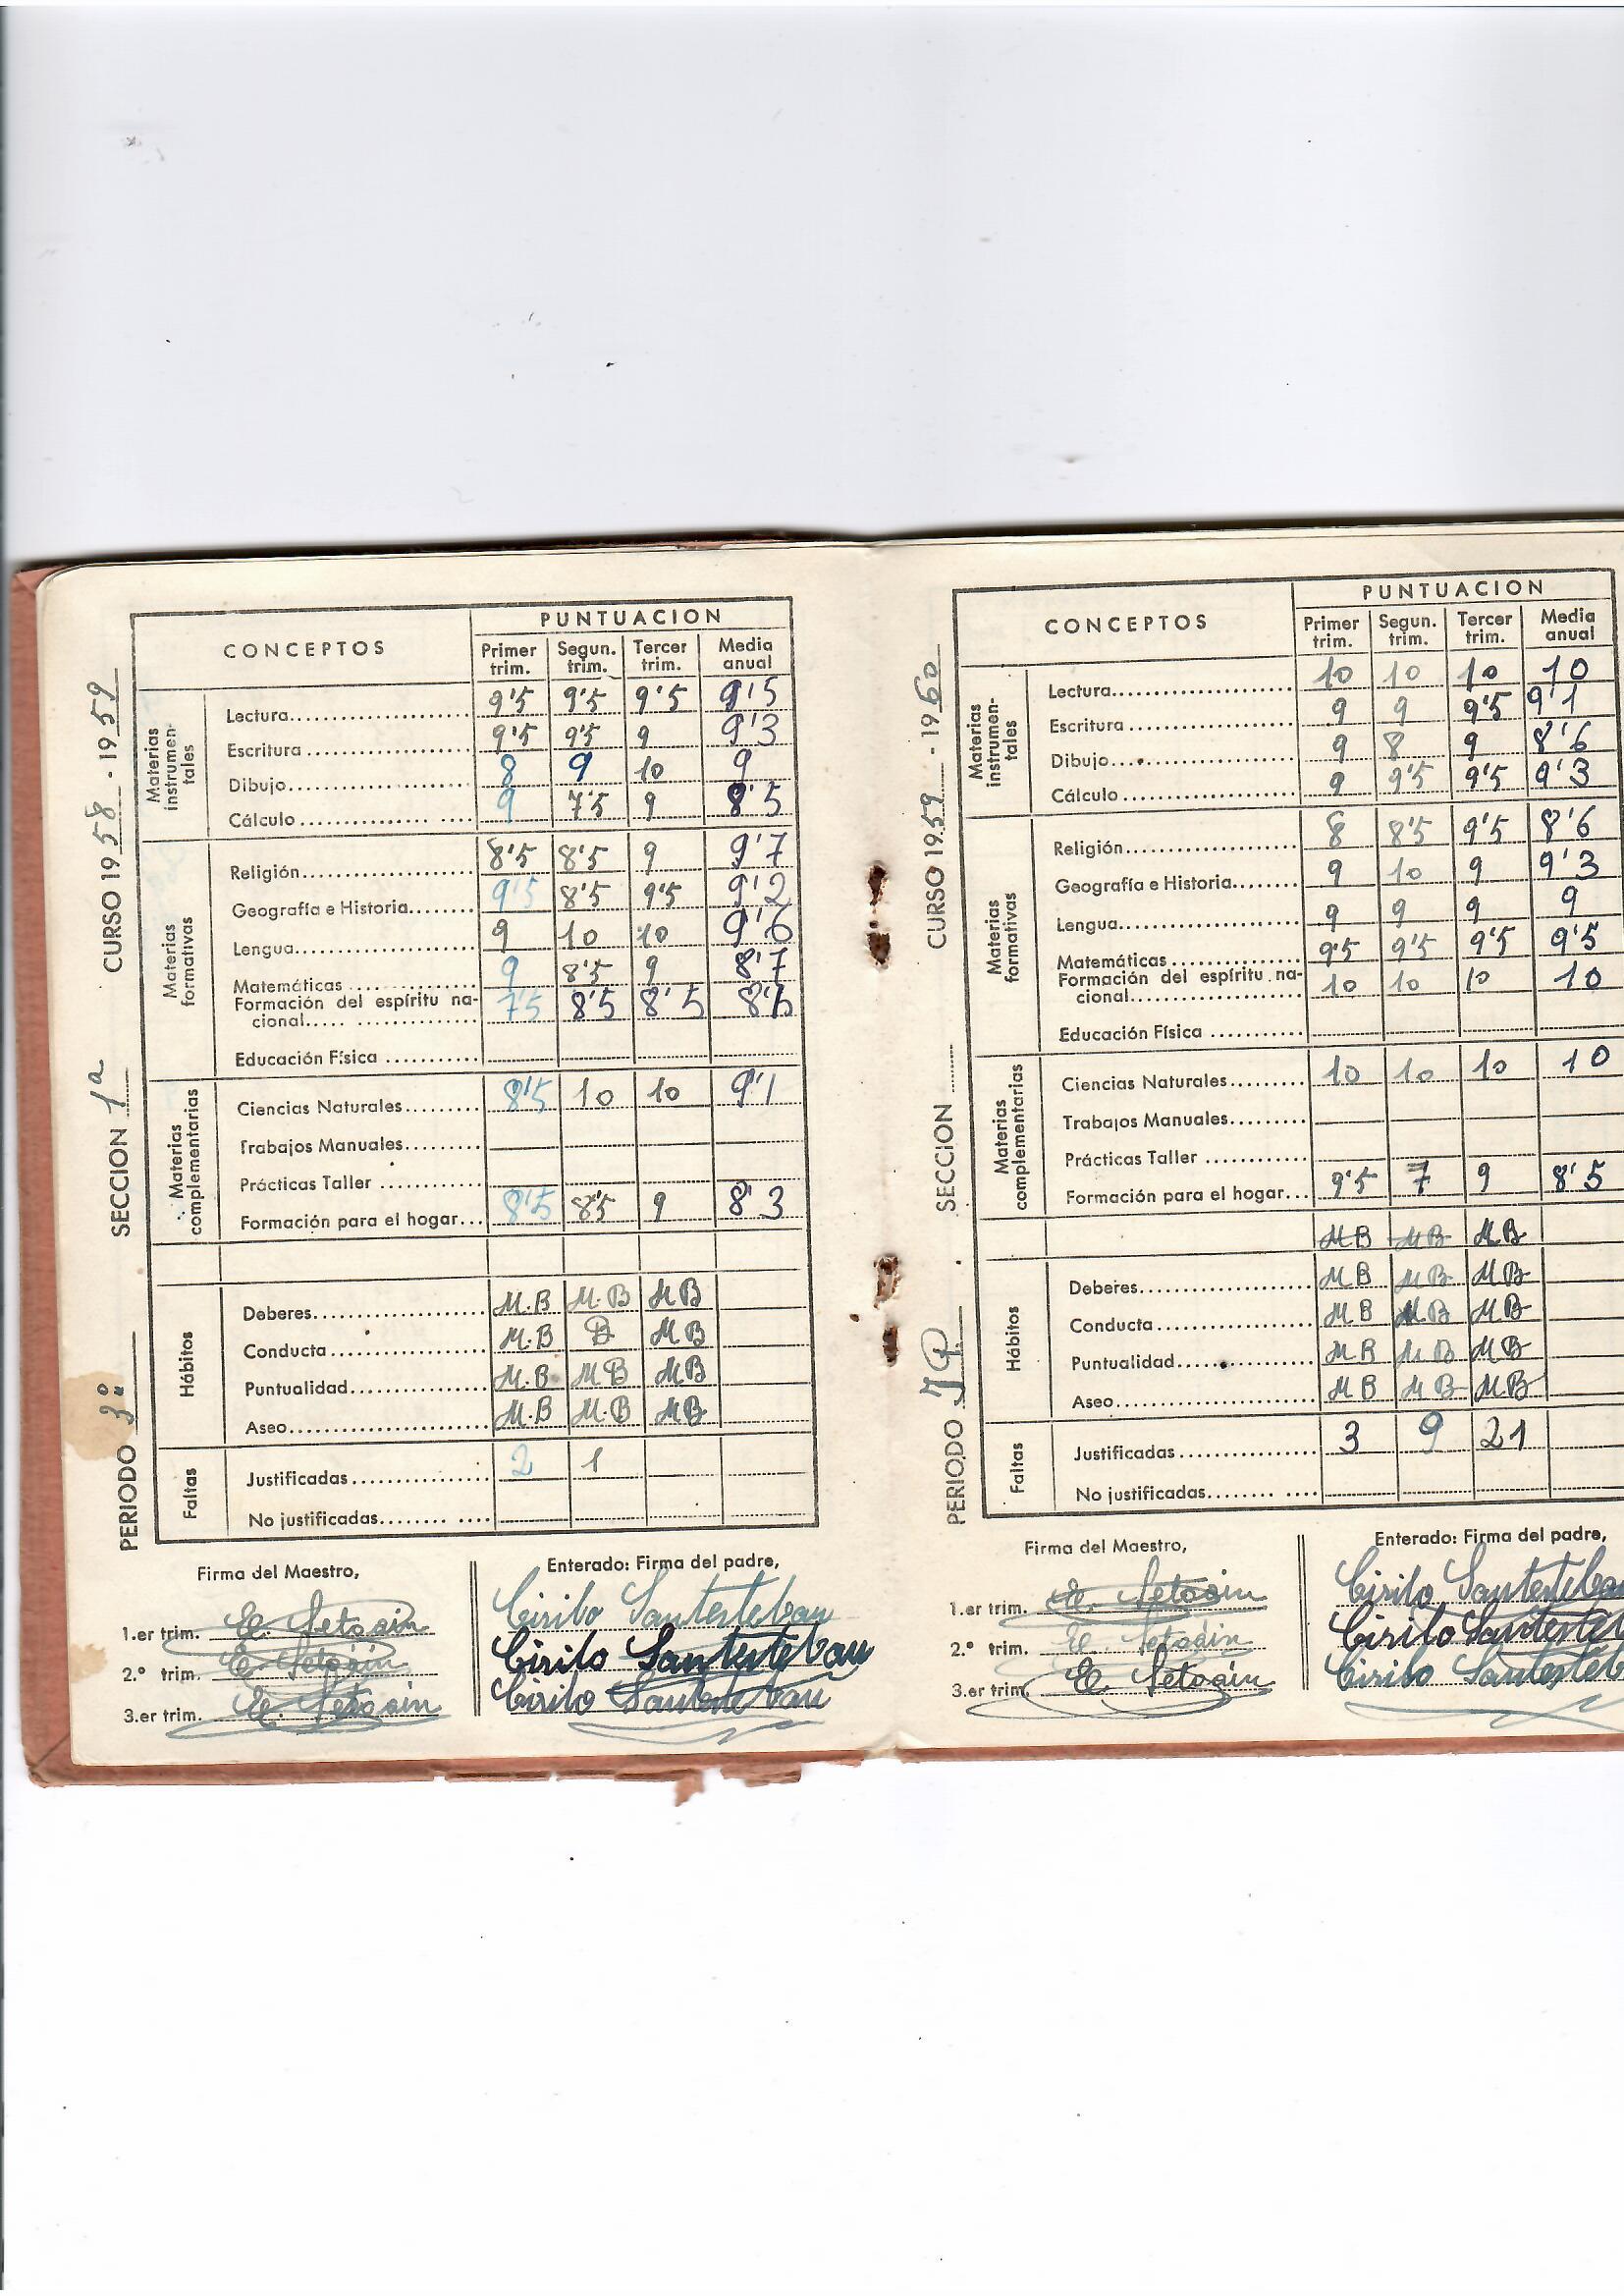 PERIODO 3º SECCION 1ª CURSO 1958 - 1959
CONCEPTOS
PUNTUACION
Primer trim. Segun. trim. Tercer trim. Media anual
Materias instrumen-tales
Lectura 9'5 9'5 9'5 9'5
Escritura 9'5 9'5 9 9'3
Dibujo 8 9 10 9
Cálculo 9 7'5 9 8'5
Materias formativas
Religión 8'5 8'5 9 9'7
Geografía e Historia 9'5 8'5 9'5 9'2
Lengua 9 10 10 9'6
Matemáticas 9 8'5 9 8'7
Formación del espíritu na-
cional 7'5 8'5 8'5
Educación Física
Materias complementarias
Ciencias Naturales 8'5 10 10 9'1
Trabajos Manuales
Prácticas Taller
Formación para el hogar 8'5 8'5 9 8'3
Hábitos
Deberes M.B M.B M B
Conducta M.B B M B
Puntualidad M.B M B M B
Aseo M.B M.B M B
Faltas
Justificadas 2 1
No justificadas
Firma del Maestro,
Enterado: Firma del padre,
1.er trim. E. Setoain Cirilo Santesteban
2.º trim. E. Setoain Cirilo Santesteban
3.er trim. E. Setoain Cirilo Santesteban
PERIODO SECCION CURSO 1959 - 1960
CONCEPTOS
PUNTUACION
Primer trim. Segun. trim. Tercer trim. Media anual
Materias instrumen-tales
Lectura 10 10 10 10
Escritura 9 9 9'5 9'1
Dibujo 9 8 9 8'6
Cálculo 9 9'5 9'5 9'3
Materias formativas
Religión 8 8'5 9'5 8'6
Geografía e Historia 9 10 9 9'3
Lengua 9 9 9 9
Matemáticas 9'5 9'5 9'5 9'5
Formación del espíritu na-
cional 10 10 10 10
Educación Física
Materias complementarias
Ciencias Naturales 10 10 10 10
Trabajos Manuales
Prácticas Taller
Formación para el hogar 9'5 7 9 8'5
M B M B M B
Hábitos
Deberes M B M B M B
Conducta M B M B M B
Puntualidad M B M B M B
Aseo M B M B M B
Faltas
Justificadas 3 9 21
No justificadas
Firma del Maestro,
Enterado: Firma del padre,
1.er trim. E. Setoain Cirilo Santesteban
2.º trim. E. Setoain Cirilo Santeste
3.er trim. E. Setoain Cirilo Santesteb